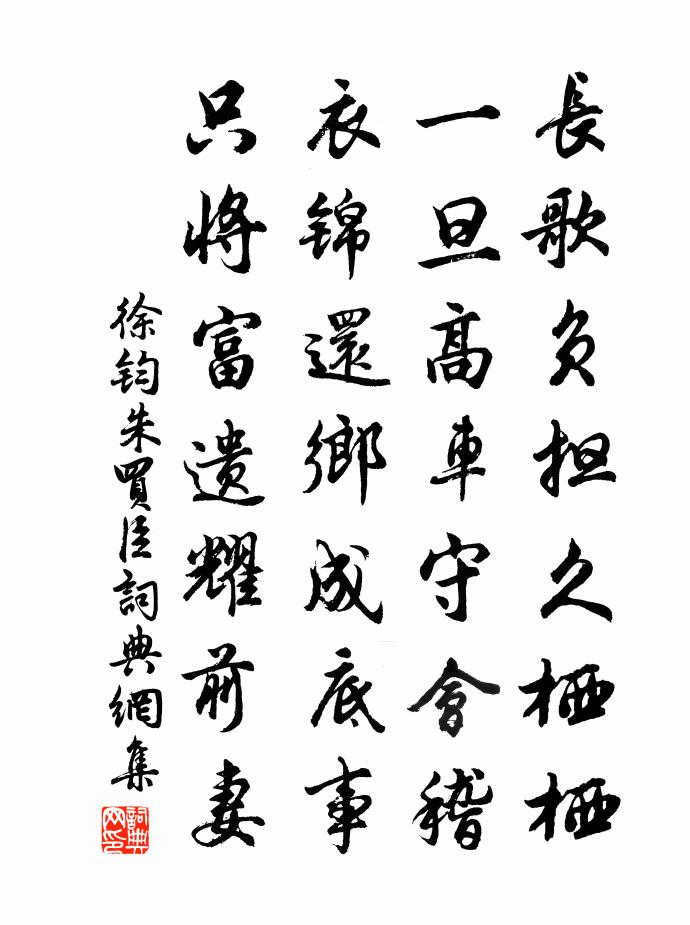 長歌負担久栖栖
一旦高車守會稽
衣錦還鄉成底事
只將富遺耀前妻
徐鈞朱買臣詞典網集
詞典网印